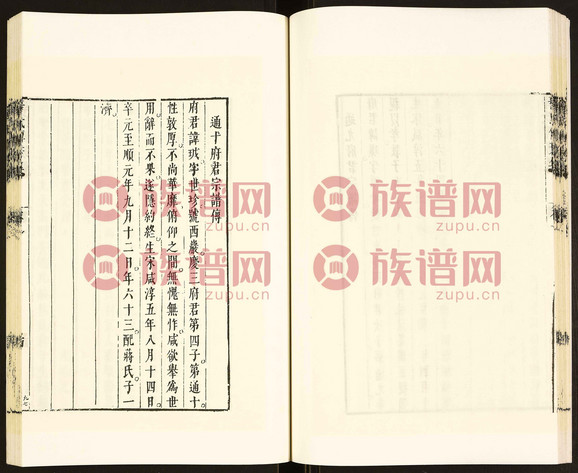 通十府君宗譜傳
府君諱珷字世珍號西巖慶二府君第四子第通十
性敦厚不尚華靡俯仰之間無愧無怍咸欲舉為世
用辭而不果遂隱約終生宋咸淳五年八月十四日
辛元至順元年九月十二日年六十三配蔣氏子一
濟
九七
族谱网
zupu.cn
族谱网
zupu.cn
族谱网
zupu.cn
族谱网
zupu.cn